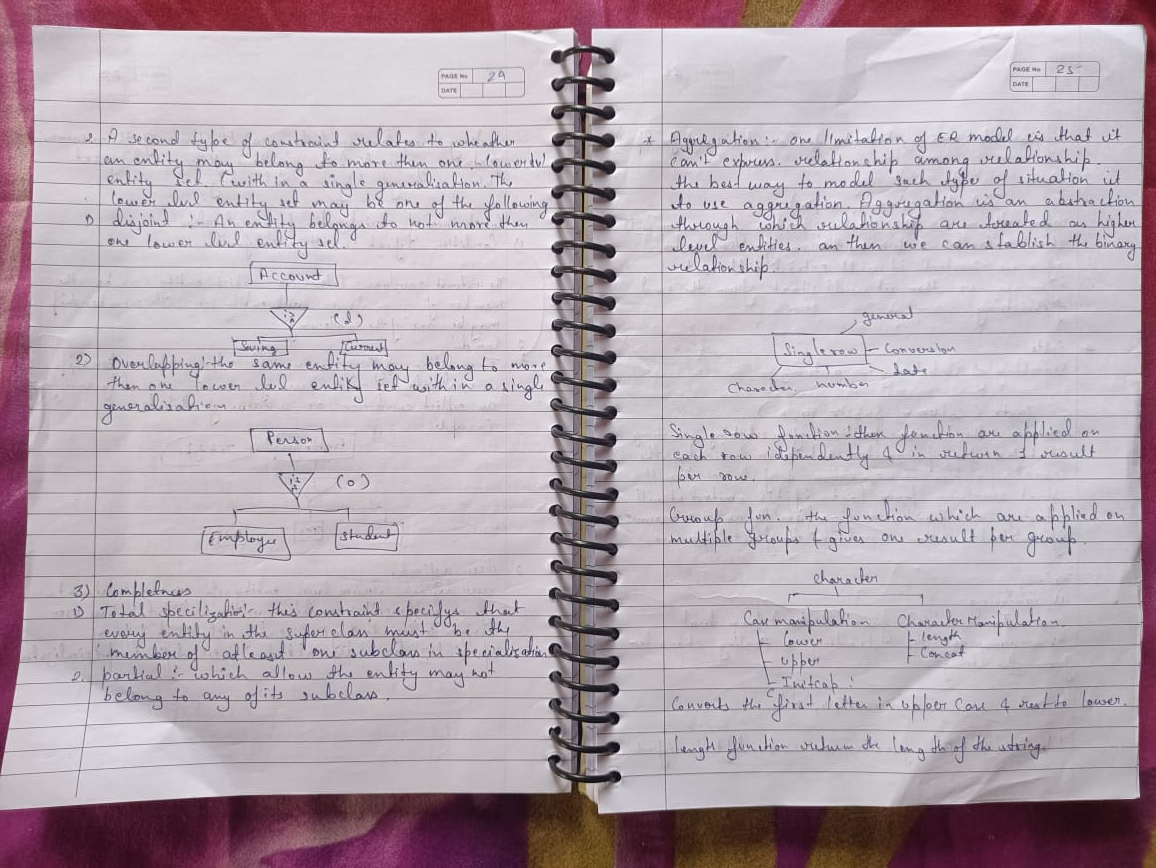 PAGE No 24
DATE
2. A second type of constraint relates to wheather
an entity may belong to more then one lower lvl
entity set (with in a single generalisation. The
lower lvl entity set may be one of the following
1) disjoint :- An entity belongs to not more then
one lower lvl entity set.
Account
is A (d)
Saving Current
2) Overlapping :- the same entity may belong to more
then one lower lvl entity set with in a single
generalisation
Person
is A (o)
Employee Student
3) Completness
1) Total specilization :- this constraint specifys that
every entity in the superclass must be the
member of atleast one subclass in specialisation
2. partial :- which allow the entity may not
belong to any of its subclass.
PAGE No 25
DATE
* Aggregation :- one limitation of ER model is that it
can't express relationship among relationship.
the best way to model such type of situation is
to use aggregation. Aggregation is an abstraction
through which relationship are treated as higher
level entities. an then we can stablish the binary
relationship.
general
Single row Conversion
date
Character number
Single row function :- then function are applied on
each row idependently & in return 1 result
per row.
Group fun. the function which are applied on
multiple groups & gives one result per group.
character
Case manipulation Character manipulation.
lower length
upper Concat
Initcap :
Converts the first letter in upper Case & rest to lower.
length function return the length of the string.